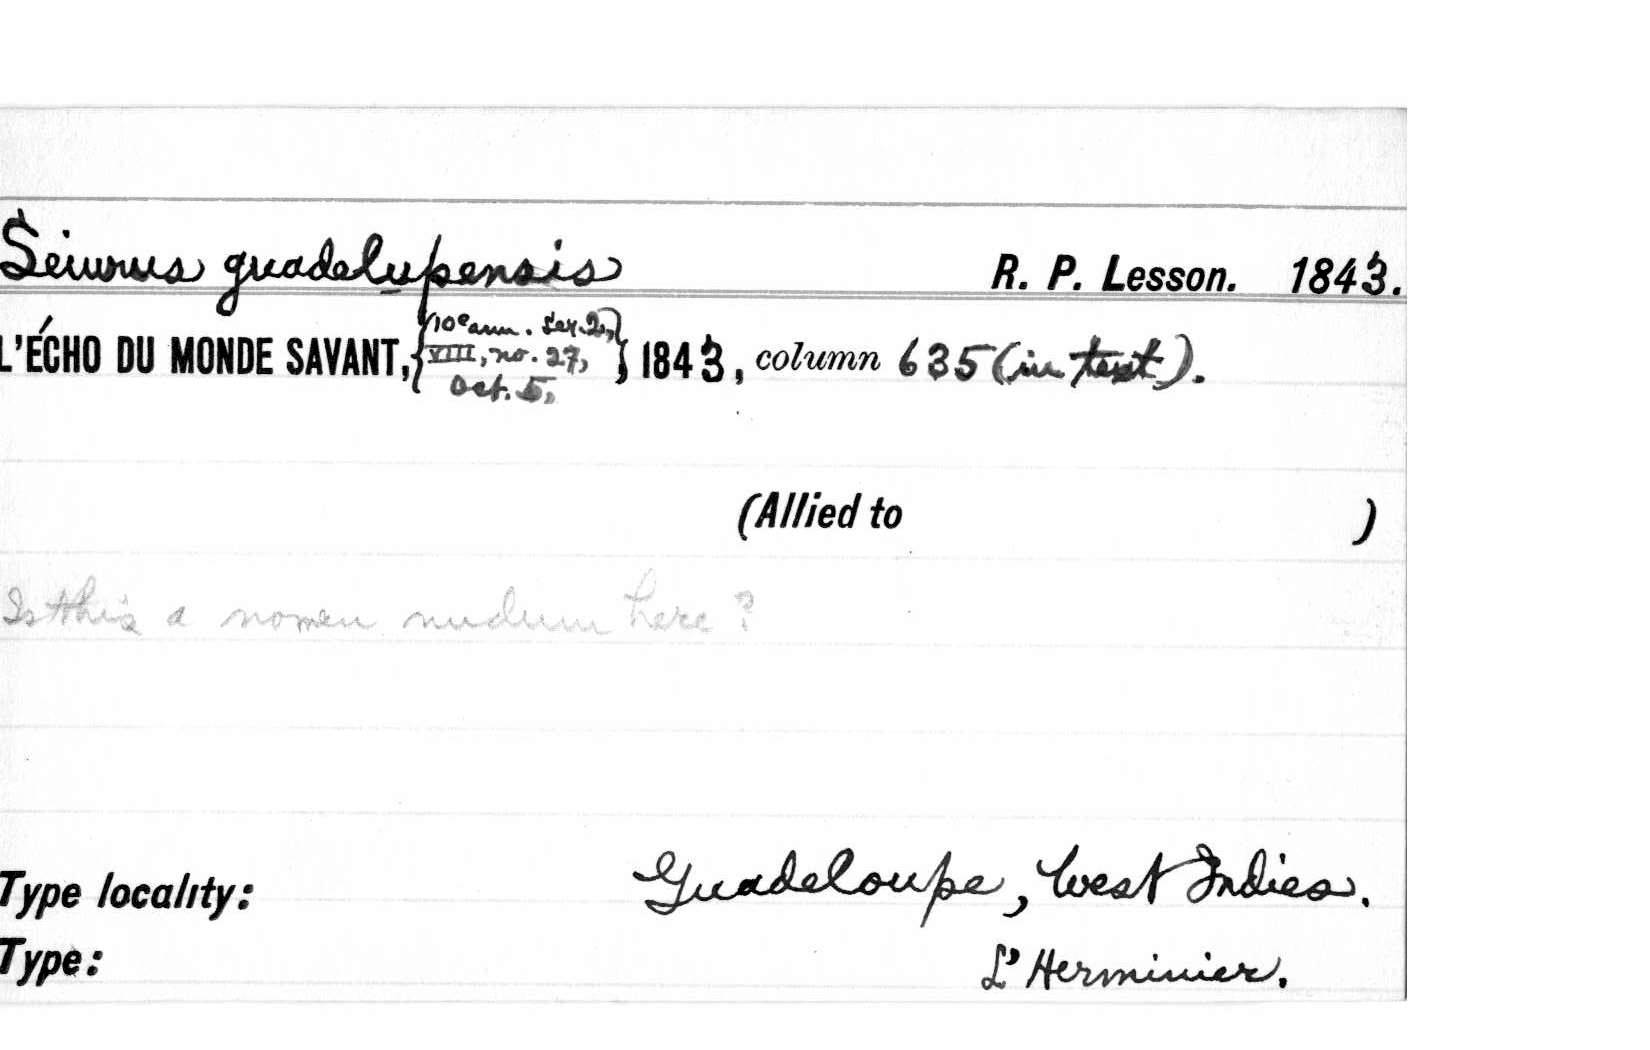 Seiurus guadelupensis R. P. Lesson. 1843.
L'ÉCHO DU MONDE SAVANT, {10e ann. Ser. 2, VIII, no. 27, Oct. 5,} 1843, column 635 (in text).
(Allied to )
Is this a nomen nudum here?
Type locality: Guadeloupe, West Indies.
Type: L'Herminier.